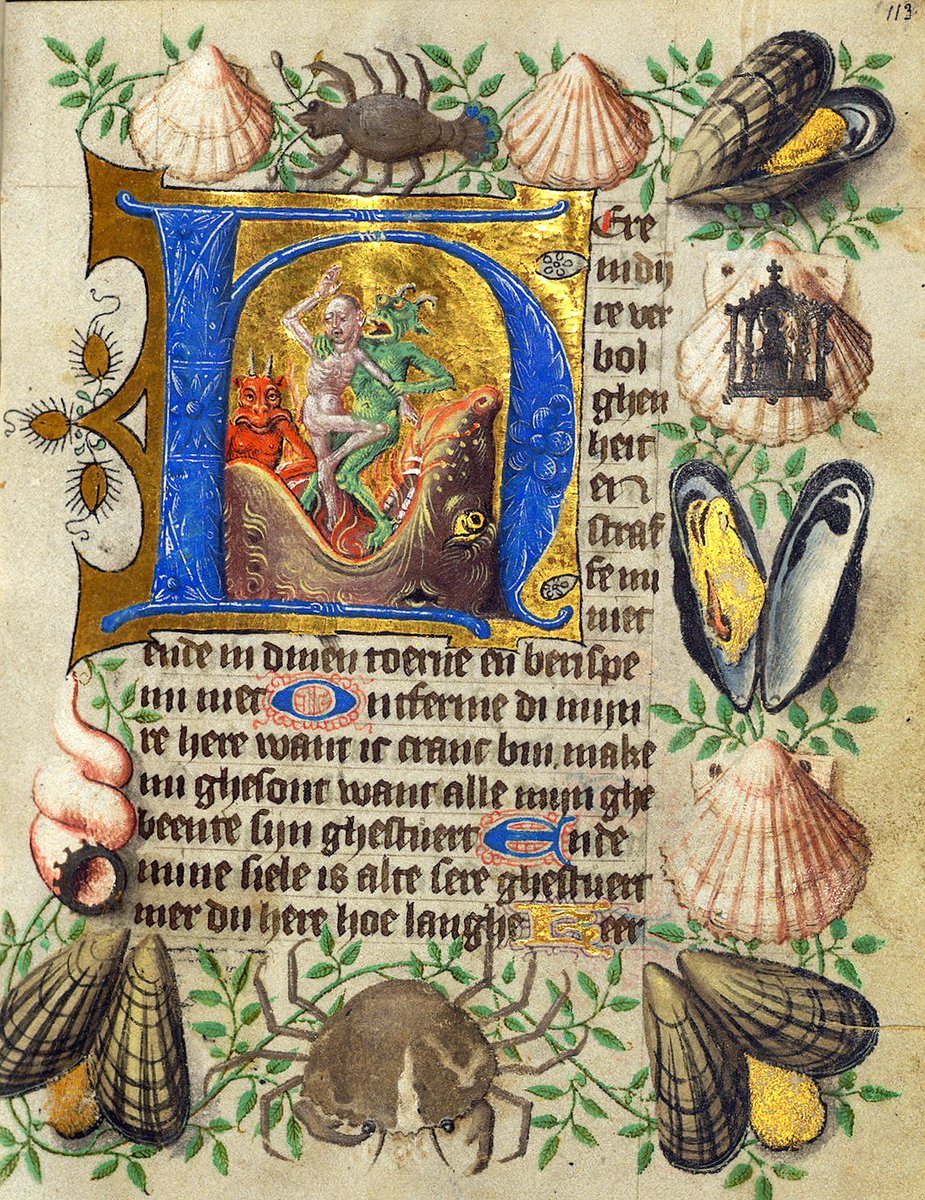 113
HEre
in dijn
re ver
bol
ghen
heit
en
straf
fe mi
niet
ende in dinen toerne en berispe
mi niet Ontferme di mijn
re here want ic cranc bin. make
mi ghesont want alle mijn ghe
beente sijn ghestuert Ende
mine siele is alte sere ghestuert
mer du here hoe langhe Keer